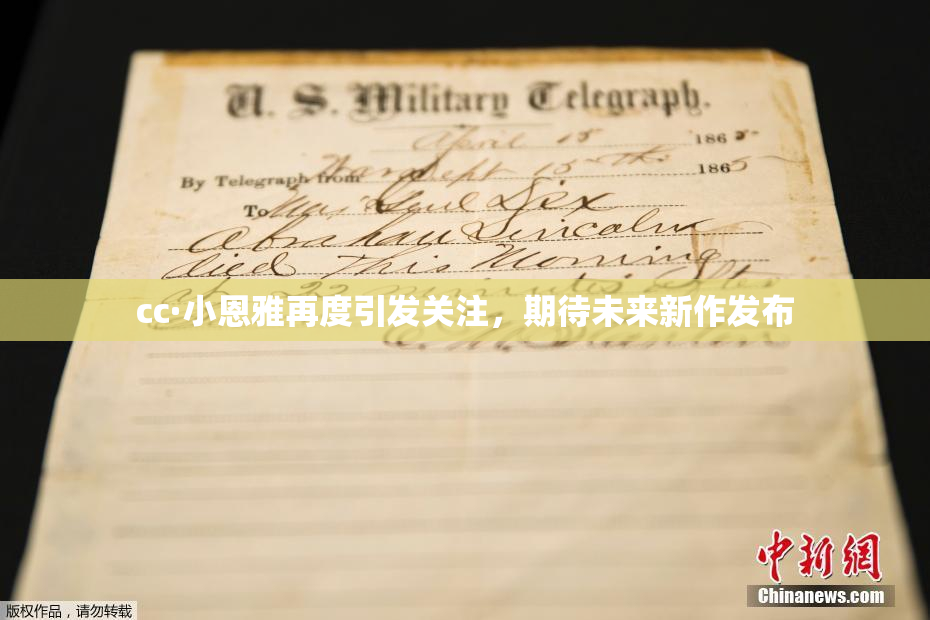 U. S. Military Telegraph.
April 15 1865.
By Telegraph from War Dept 15th 1865
To Maj Genl Dix
Abraham Lincoln
died This Morning
at 22 minutes after
cc·小恩雅再度引发关注，期待未来新作发布
中新网
Chinanews.com
版权作品，请勿转载